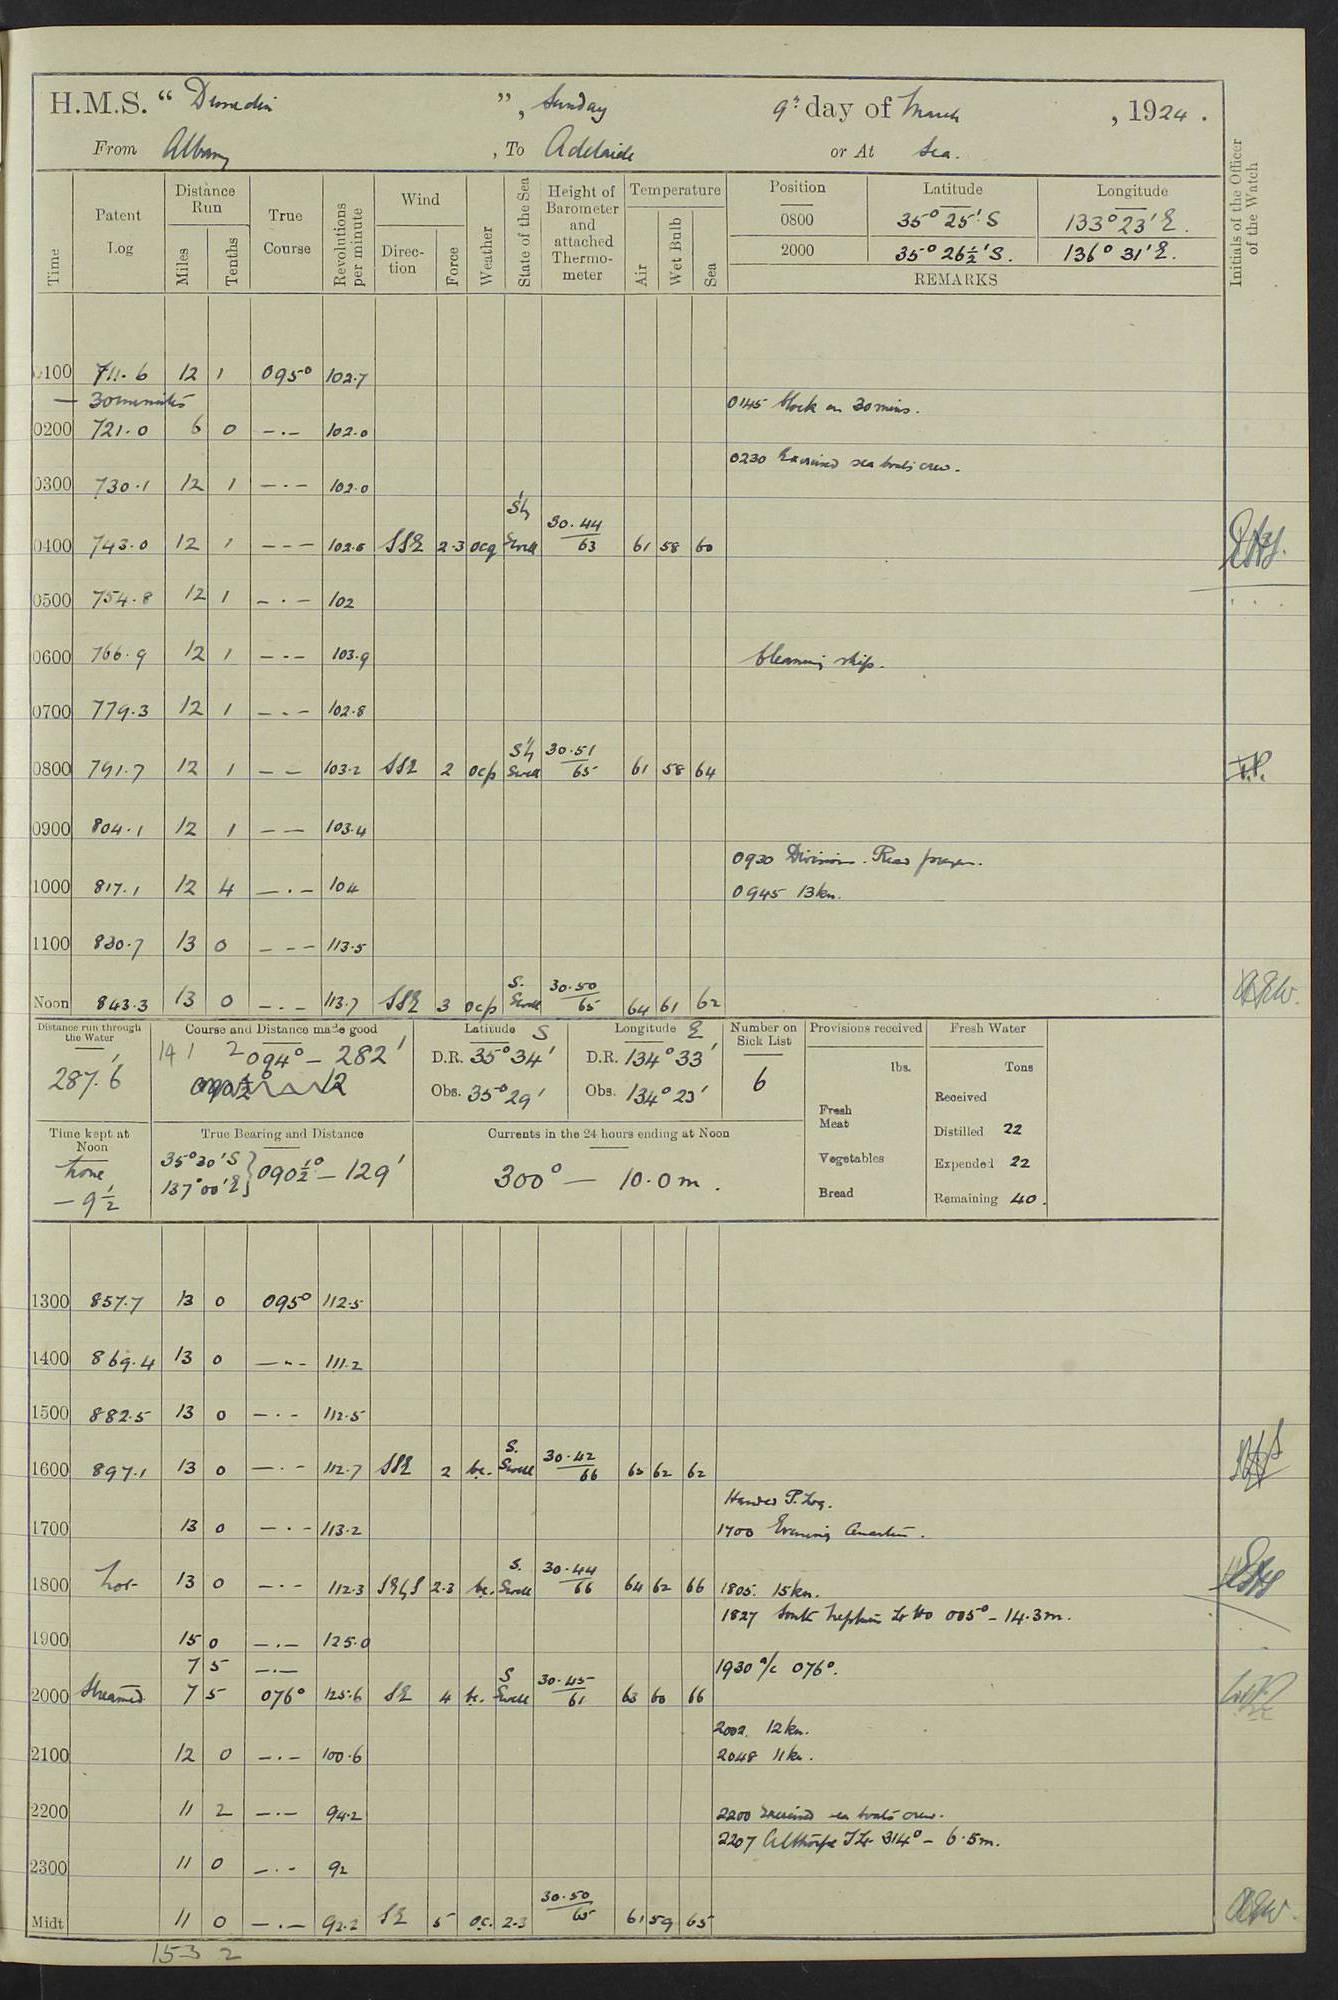 H.M.S. “ Dunedin ”, Sunday 9th day of March, 1924.
From Albany, To Adelaide or At Sea.
Time
Patent Log
Distance Run
Miles
Tenths
True Course
Revolutions per minute
Wind
Direction
Force
Weather
State of the Sea
Height of Barometer and attached Thermometer
Temperature
Air
Wet Bulb
Sea
Position Latitude Longitude
0800 35° 25' S 133° 23' E.
2000 35° 26½' S. 136° 31' E.
REMARKS
Initials of the Officer of the Watch
0100 711.6 12 1 095° 102.7
— 30 minutes
0145 Clock on 30 mins.
0200 721.0 6 0 —.— 102.0
0230 Exercised sea boats crew.
0300 730.1 12 1 —.— 102.0
0400 743.0 12 1 — — — 102.6 SSE 2.3 ocq Swell 30.44/63 61 58 60
0500 754.8 12 1 —.— 102
0600 766.9 12 1 —.— 103.9 Cleaning ship.
0700 779.3 12 1 —.— 102.8
0800 791.7 12 1 — — 103.2 SSE 2 ocp Swell 30.51/65 61 58 64
0900 804.1 12 1 — — 103.4
0930 Divisions. Read prayers.
1000 817.1 12 4 —.— 104 0945 13 kn.
1100 830.7 13 0 — — — 113.5
Noon 843.3 13 0 —.— 113.7 SSE 3 ocp S. Swell 30.50/65 64 61 62
Distance run through the Water
287.6'
Course and Distance made good
141 2 094° — 282'
Latitude S
D.R. 35° 34'
Obs. 35° 29'
Longitude E
D.R. 134° 33'
Obs. 134° 23'
Number on Sick List
6
Provisions received
lbs.
Fresh Meat
Vegetables
Bread
Fresh Water
Tons
Received
Distilled 22
Expended 22
Remaining 40.
Time kept at Noon
Zone
— 9½
True Bearing and Distance
35° 30' S
137° 00' E } 090½° — 129'
Currents in the 24 hours ending at Noon
300° — 10.0 m.
1300 857.7 13 0 095° 112.5
1400 869.4 13 0 —.— 111.2
1500 882.5 13 0 —.— 112.5
1600 897.1 13 0 —.— 112.7 SSE 2 bc. S. Swell 30.42/66 62 62
Handed P. Log.
1700 13 0 —.— 113.2 1700 Evening Quarters.
1800 13 0 —.— 112.3 SE by S 2.3 bc. S. Swell 30.44/66 64 62 66 1805. 15 kn.
1827 South Neptune Lt Ho 005° — 14.3 m.
1900 15 0 —.— 125.0
7 5 —.— 1930 a/c 076°.
2000 Streamed 7 5 076° 125.6 SE 4 bc. S Swell 30.45/61 63 60 66
2002. 12 kn.
2100 12 0 —.— 100.6 2048 11 kn.
2200 11 2 —.— 94.2 2200 Exercised sea boats crew.
2207 Althorpe I Lt 314° — 6.5 m.
2300 11 0 —.— 92
Midt 11 0 —.— 92.2 SE 5 o.c. 2.3 30.50/65 61 59 65
153 2